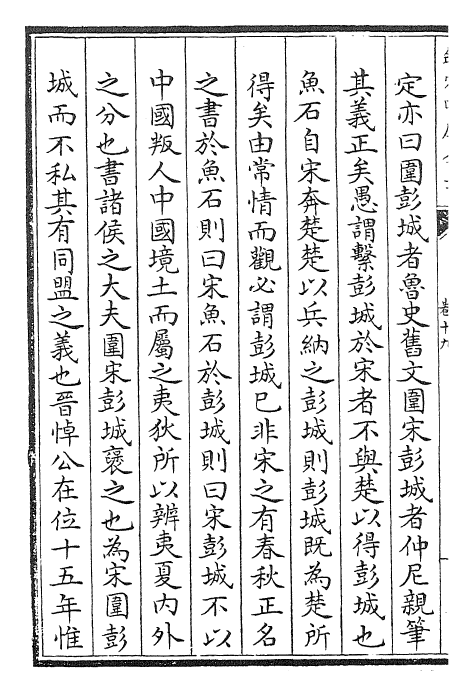 定亦曰圍彭城者魯史舊文圍宋彭城者仲尼親筆
其義正矣愚謂繫彭城於宋者不與楚以得彭城也
魚石自宋奔楚楚以兵納之彭城則彭城既為楚所
得矣由常情而觀必謂彭城已非宋之有春秋正名
之書於魚石則曰宋魚石於彭城則曰宋彭城不以
中國叛人中國境土而屬之夷狄所以辨夷夏内外
之分也書諸侯之大夫圍宋彭城褒之也為宋圍彭
城而不私其有同盟之義也晉悼公在位十五年惟
卷十九